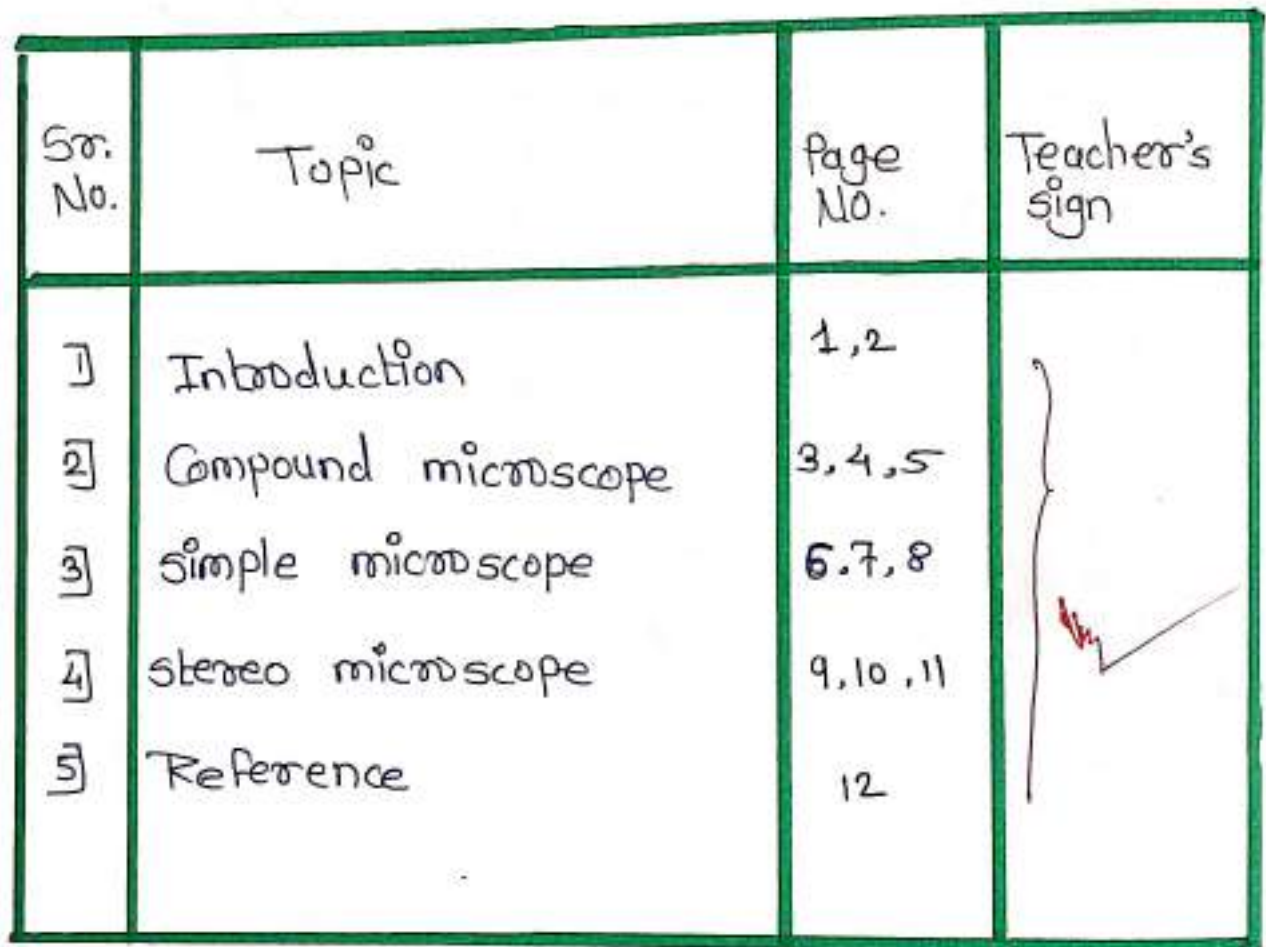 Sr. No. Topic Page No. Teacher's sign
1] Introduction 1,2
2] Compound microscope 3,4,5
3] simple microscope 6.7,8
4] stereo microscope 9,10,11
5] Reference 12